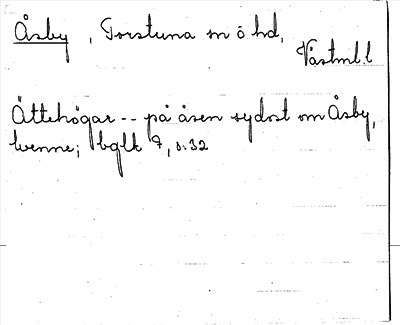 Åsby, Torstuna sn ö hd,
Västml.l
Ättehögar -- på åsen sydost om Åsby,
hvenne; bglk 7, s. 32